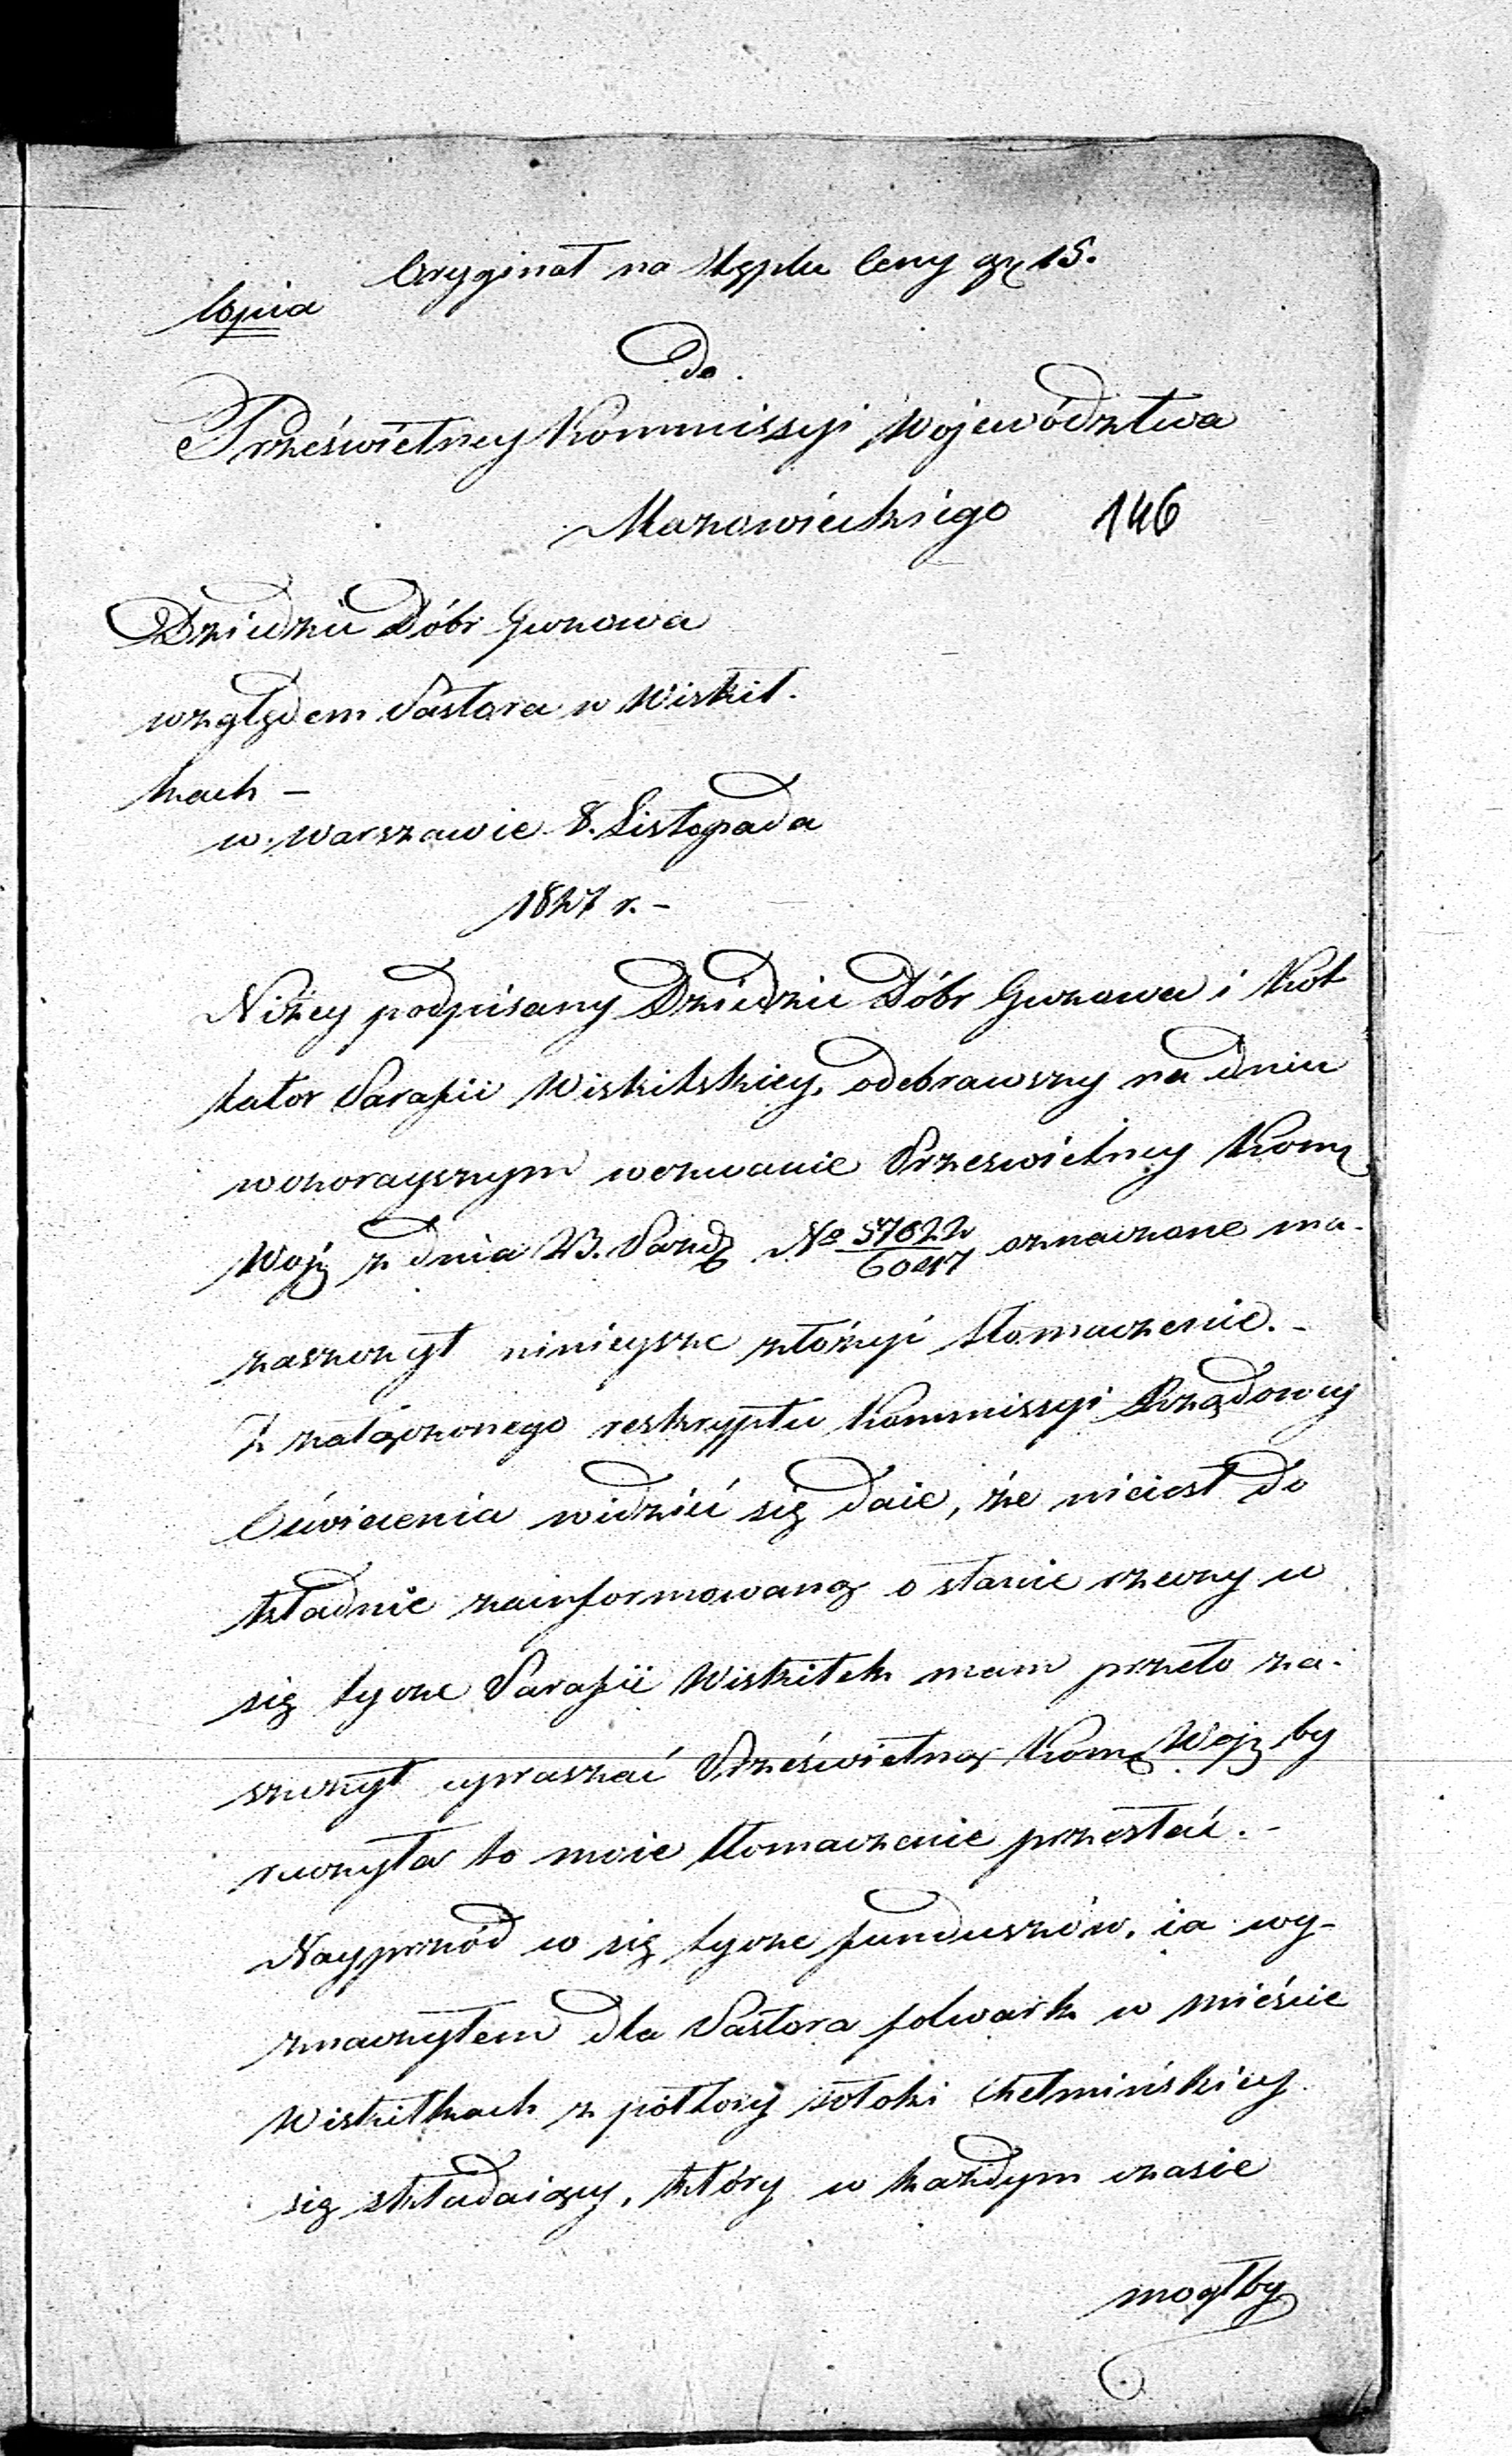 Oryginał na stęplu Ceny gr 15.
Copia
Do.
Prześwietney Kommissyi Województwa
Mazowieckiego 146
Dziedzic Dóbr Guzowa
względem Pastora w Wiskit.
kach –
w Warszawie 8. Listopada
1827 r. –
Niżey podpisany Dziedzic Dóbr Guzowa i Kol
lator Parafii Wiskitskiey, odebrawszy na dniu
wczorayszym wezwanie Prześwietney Kom
Woj z dnia 23. Paźd No 57622/6047 oznaczone ma
zaszczyt ninieysze złożyć tłomaczenie. –
Z załączonego reskryptu Kommissyi Rządowey
Oświecenia widzieć się daie, że nieiest do
kładnie zainformowaną o stanie rzeczy w
się tycze Parafii Wiskitek mam przeto za-
szczyt upraszać Prześwietną Kom Woj by
raczyła to moie tłomaczenie przesłać. –
Nayprzód w się tycze funduszów, ia wy-
znaczyłem dla Pastora folwark w mieście
Wiskitkach z półtory włoki Chełmińskiey
się składaiący, który w każdym czasie
mogłby